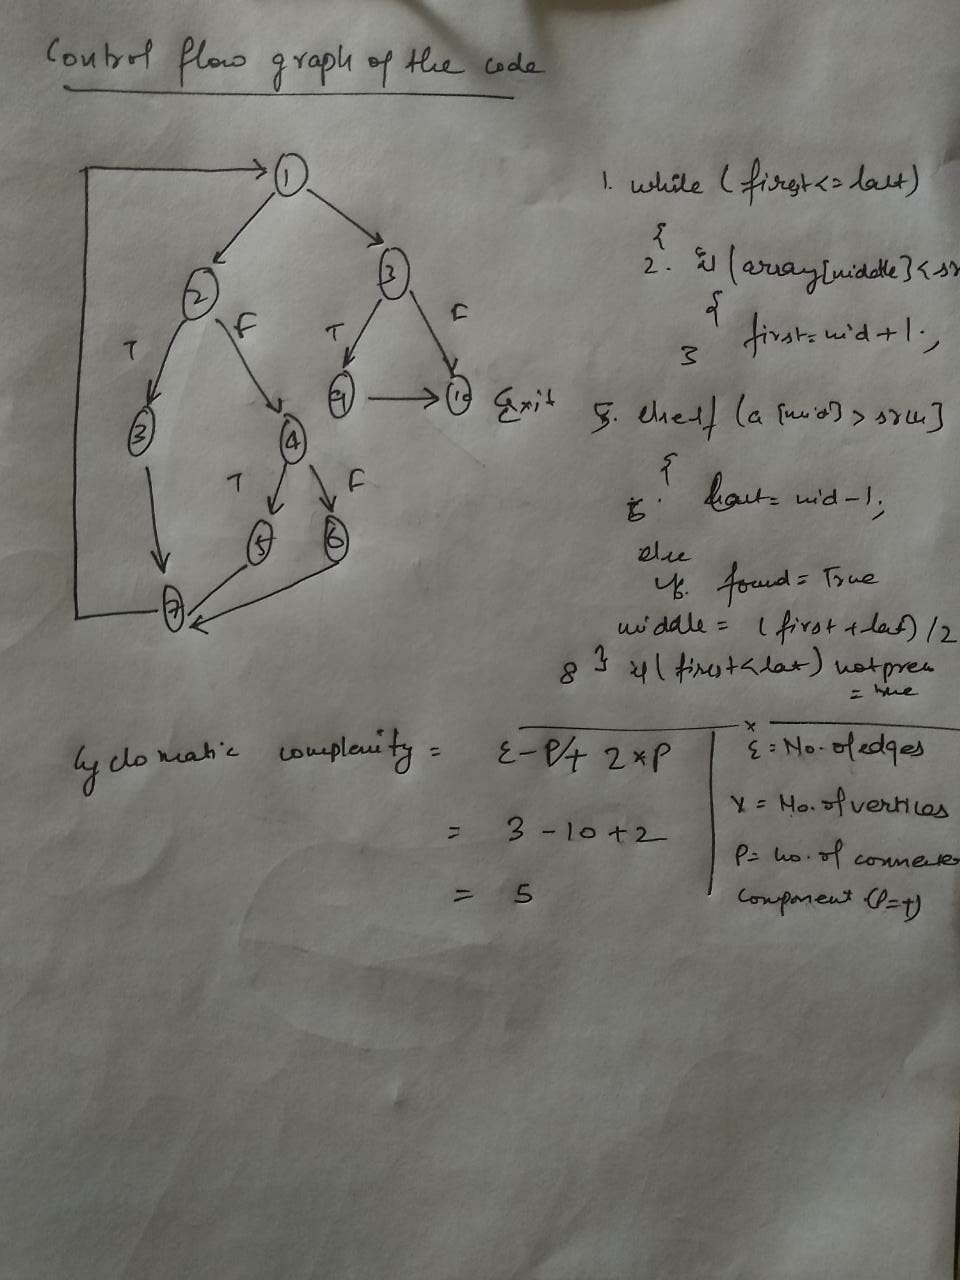 Control flow graph of the code
1
2
3
T
F
T
F
3
4
9
10
Exit
T
F
5
6
7
1. while (first<=last)
{
2. if (array[middle]<sr
{
3 first=mid+1;
5. elseif (a[mid]>srch]
{
last=mid-1;
else
found=True
middle=(first+last)/2
8 } if(first<last) notpres
=true
Cyclomatic complexity = E-P+2*P
= 3-10+2
= 5
E=No. of edges
V=No. of vertices
P=no. of connecte
component (P=1)